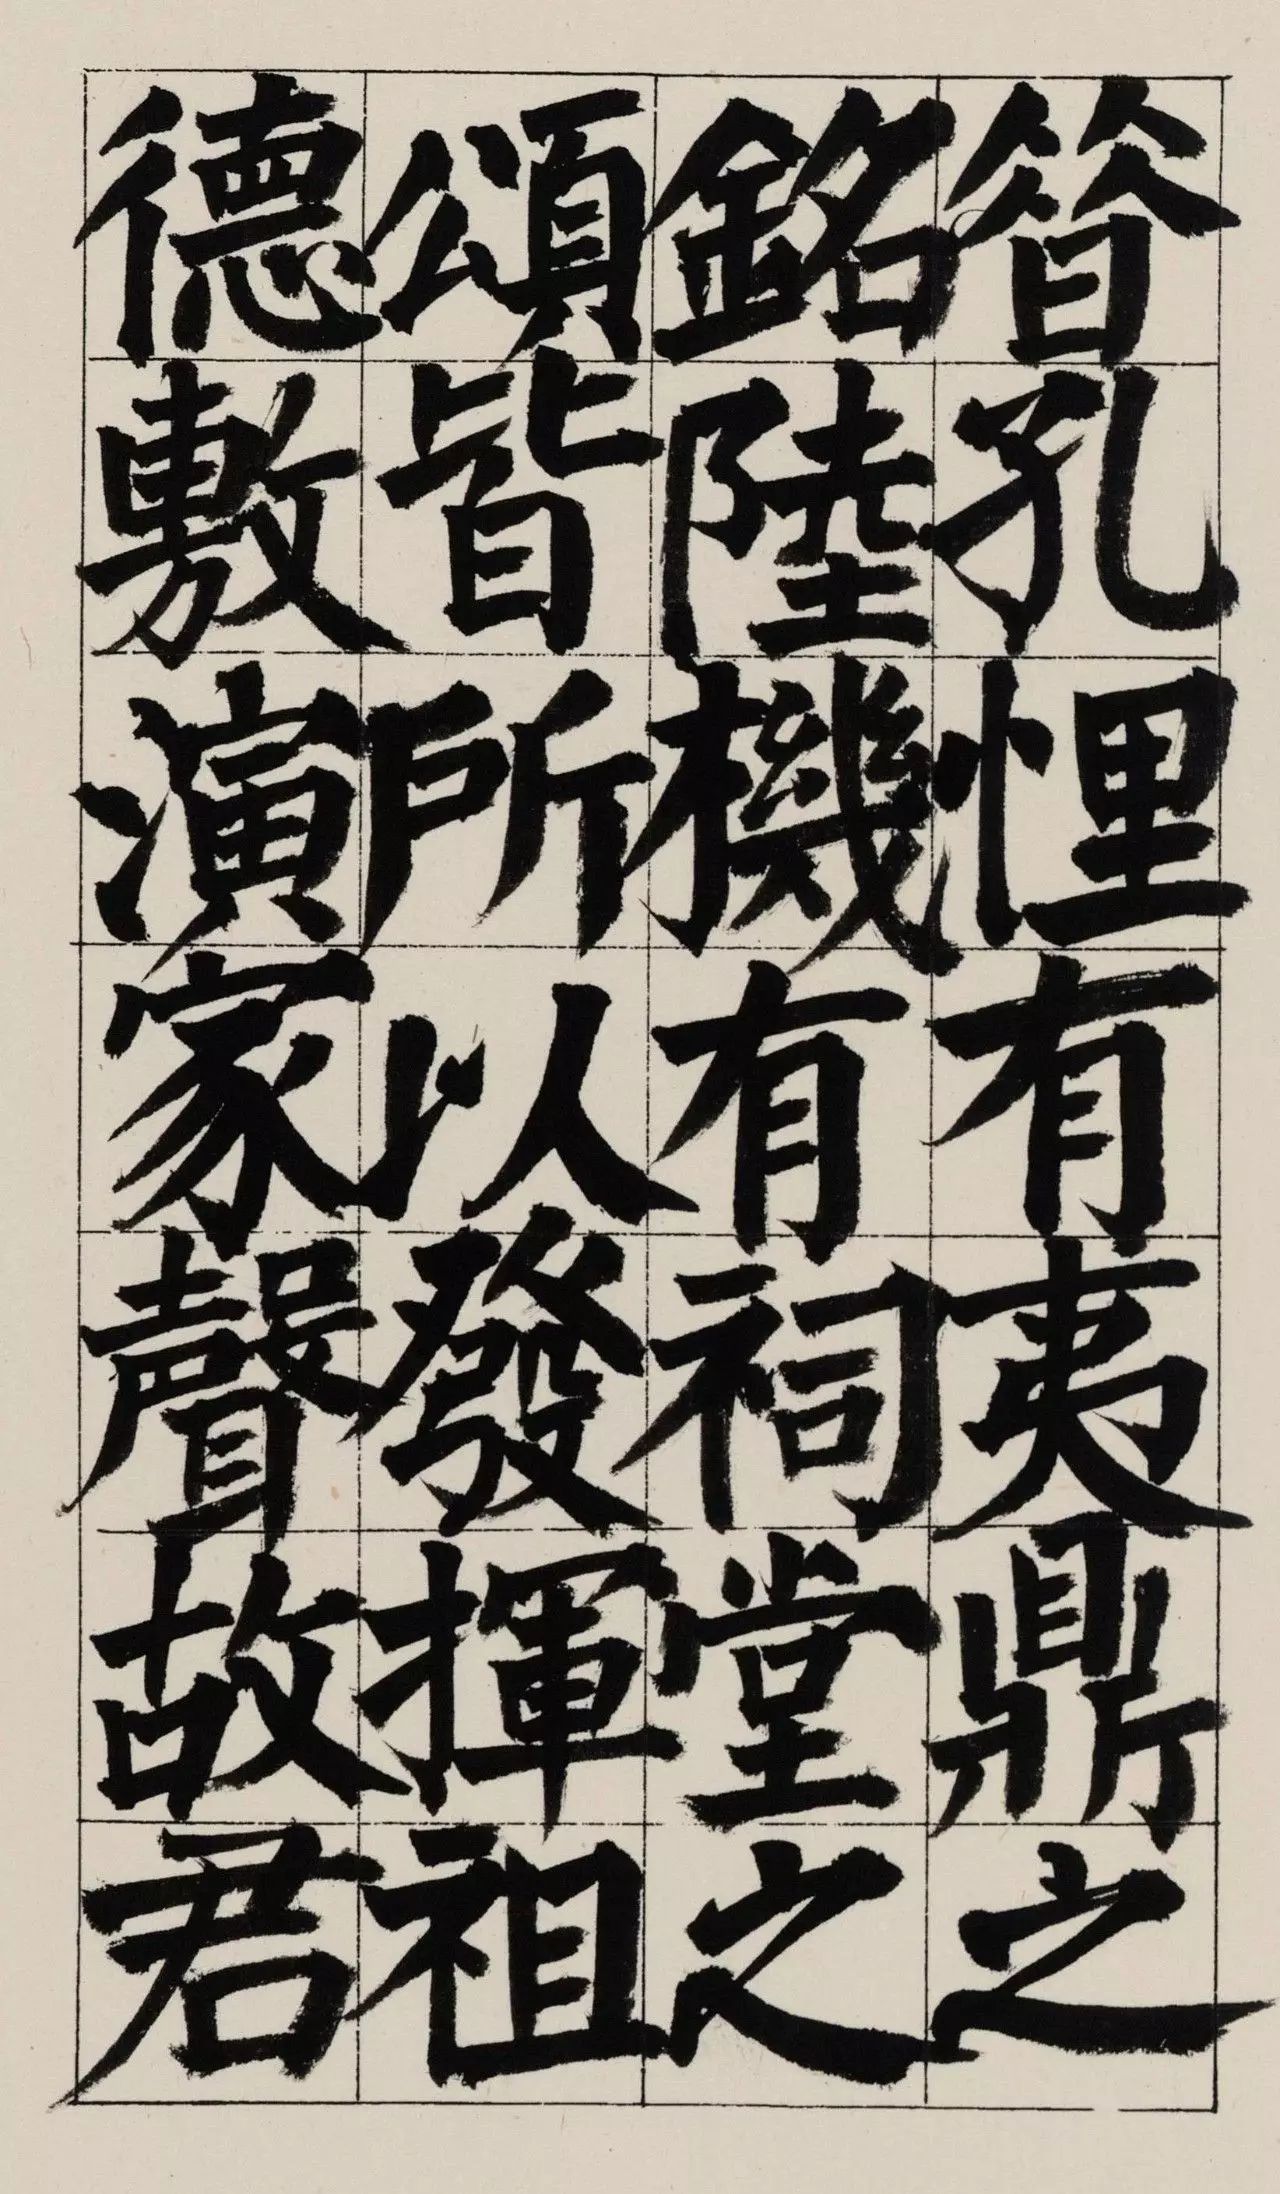 昔孔悝有夷鼎之
銘陸機有祠堂之
頌皆所以發揮祖
德敷演家聲故君